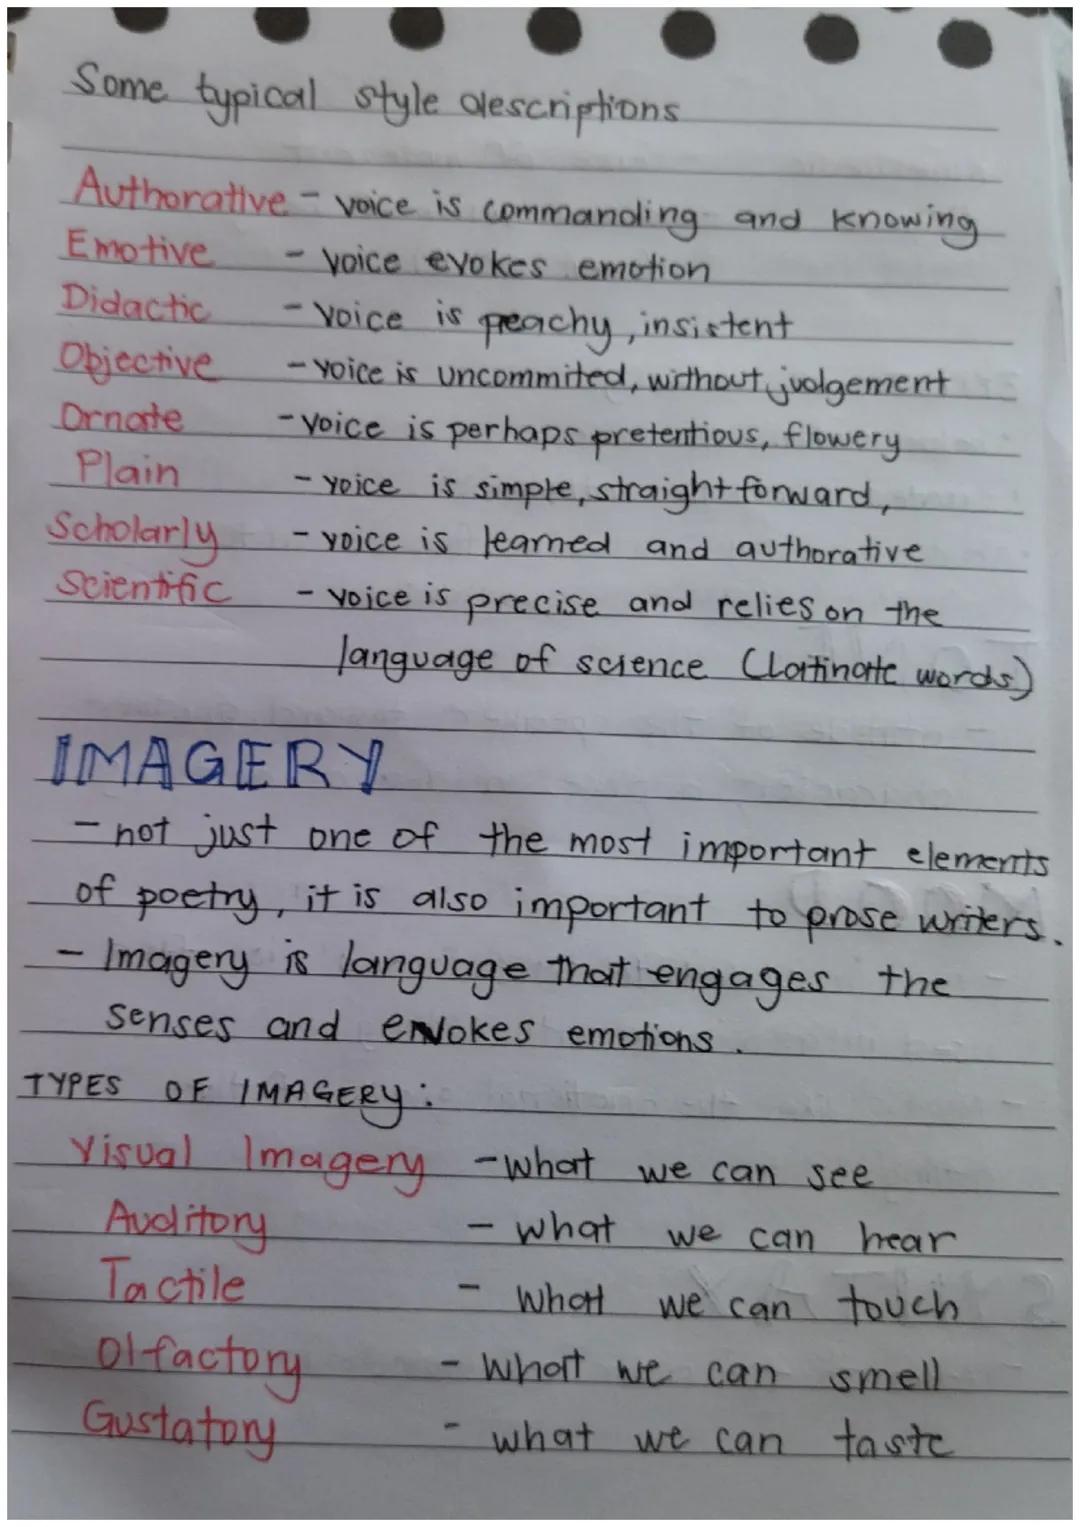 Some typical style descriptions
Authorative - voice is commanding and knowing
Emotive - voice evokes emotion
Didactic - voice is preachy, insistent
Objective - voice is uncommited, without judgement
Ornate - voice is perhaps pretentious, flowery
Plain - voice is simple, straight forward,
Scholarly - voice is learned and authorative
Scientific - voice is precise and relies on the
language of science (Latinate words)
IMAGERY
- not just one of the most important elements
of poetry, it is also important to prose writers.
- Imagery is language that engages the
senses and evokes emotions.
TYPES OF IMAGERY:
Visual Imagery - what we can see
Auditory - what we can hear
Tactile - what we can touch
Olfactory - what we can smell
Gustatory - what we can taste